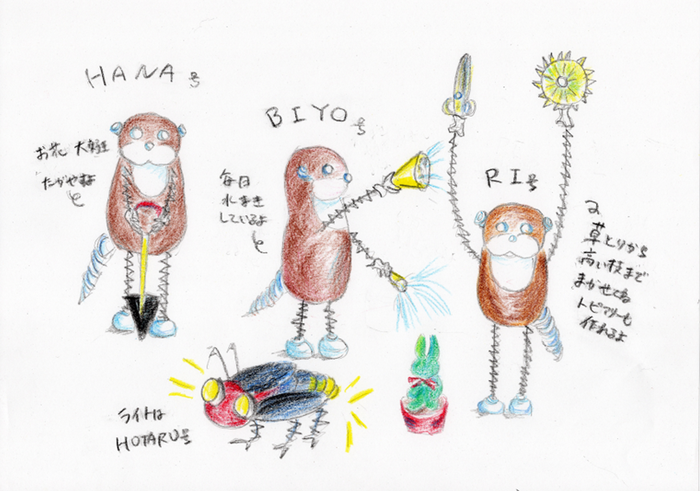 HANA号
お花 大好き
たがやすよ
BIYO号
毎日
水まき
しているよ
RI号
草とりから
高い枝まで
まかせてね
トピアリーも
作れるよ
ライトは
HOTARU号